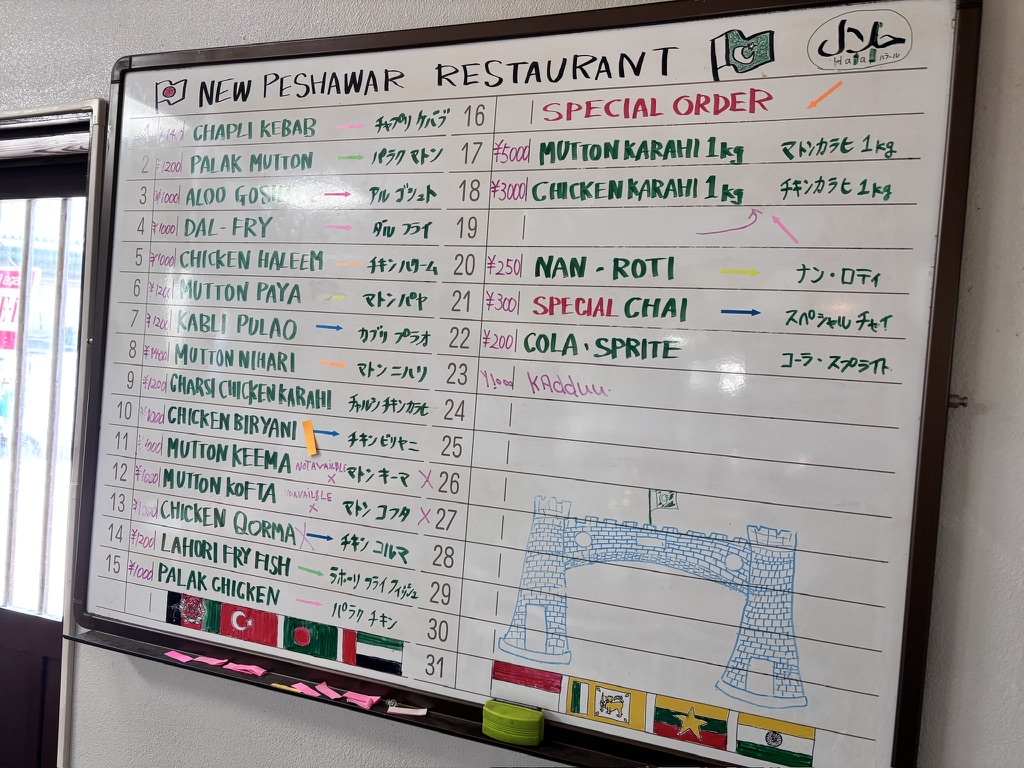 NEW PESHAWAR RESTAURANT
حلال
Halal ハラール
1 CHAPLI KEBAB チャプリ ケバブ
2 ¥1200 PALAK MUTTON パラク マトン
3 ¥1000 ALOO アル ゴシュト
4 ¥1000 DAL-FRY ダル フライ
5 ¥1000 CHICKEN HALEEM チキン ハリーム
6 ¥1200 MUTTON PAYA マトン パヤ
7 ¥1200 KABLI PULAO カブリ プラオ
8 MUTTON NIHARI マトン ニハリ
9 ¥1200 CHARSI CHICKEN KARAHI チャルシ チキンカラヒ
10 ¥1000 CHICKEN BIRYANI チキン ビリヤニ
11 MUTTON KEEMA NOT AVAILBLE X マトン キーマ X
12 MUTTON KOFTA X マトン コフタ X
13 CHICKEN QORMA X チキン コルマ
14 ¥1200 LAHORI FRY FISH ラホーリ フライ フィッシュ
15 ¥1000 PALAK CHICKEN パラク チキン
16 SPECIAL ORDER
17 ¥5000 MUTTON KARAHI 1kg マトンカラヒ 1kg
18 ¥3000 CHICKEN KARAHI 1kg チキンカラヒ 1kg
19
20 ¥250 NAN - ROTI ナン・ロティ
21 ¥300 SPECIAL CHAI スペシャル チャイ
22 ¥200 COLA・SPRITE コーラ・スプライト
23 ¥1000 KAdduu
24
25
26
27
28
29
30
31